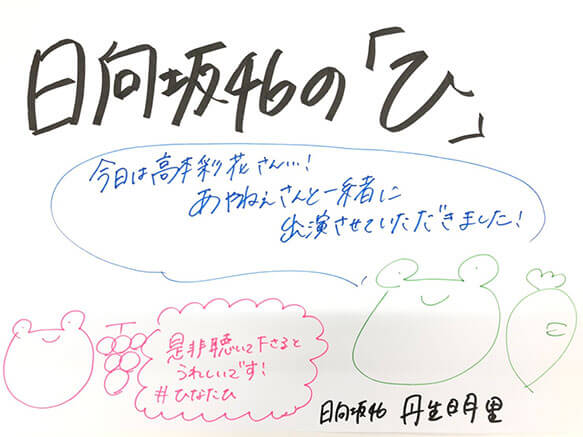 日向坂46の「ひ」
今日は高本彩花さん…!
あやねぇさんと一緒に
出演させていただきました!
是非聴いて下さると
うれしいです!
#ひなたひ
日向坂46 丹生明里